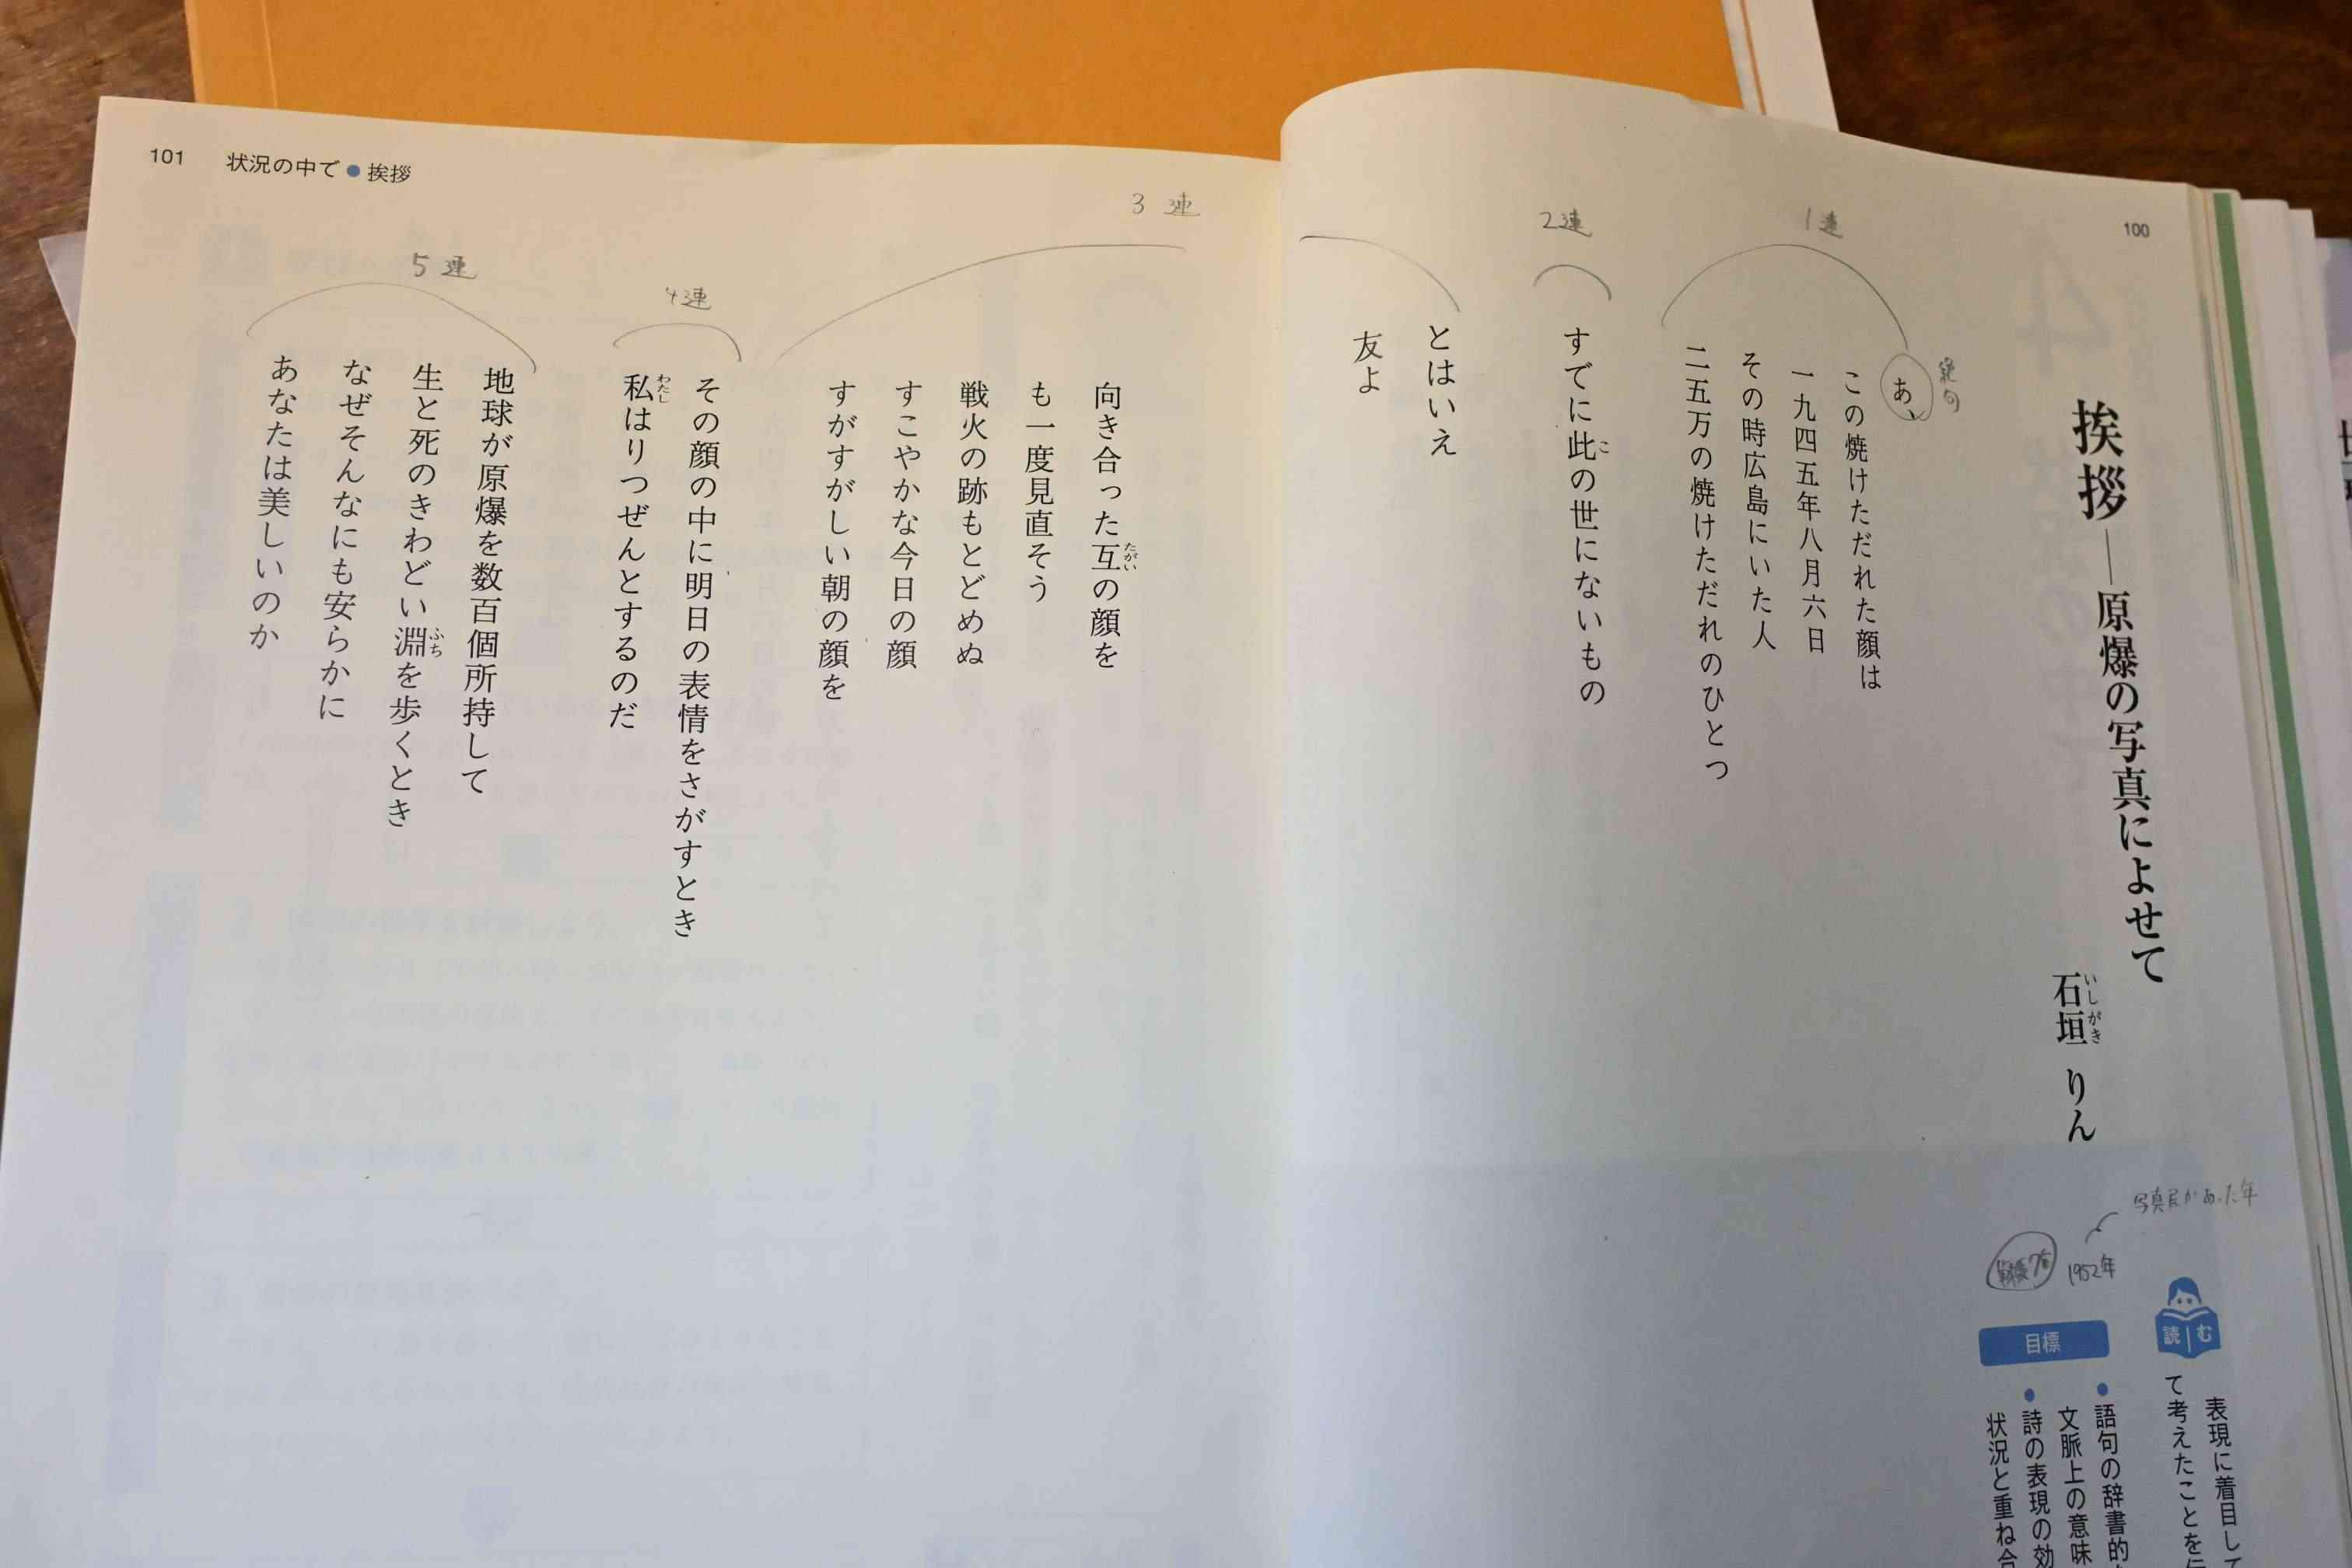 100
挨拶―原爆の写真によせて
石垣 りん
いしがき
あ、
この焼けただれた顔は
一九四五年八月六日
その時広島にいた人
二五万の焼けただれのひとつ
すでに此の世にないもの
こ
とはいえ
友よ
1連
2連
写真展があった年
1952年
読む
表現に着目して
て考えたことを
目標
語句の辞書的
文脈上の意味
詩の表現の効
状況と重ね合
101 状況の中で●挨拶
3連
向き合った互の顔を
たがい
も一度見直そう
戦火の跡もとどめぬ
すこやかな今日の顔
すがすがしい朝の顔を
4連
その顔の中に明日の表情をさがすとき
私はりつぜんとするのだ
わたし
5連
地球が原爆を数百個所持して
生と死のきわどい淵を歩くとき
ふち
なぜそんなにも安らかに
あなたは美しいのか